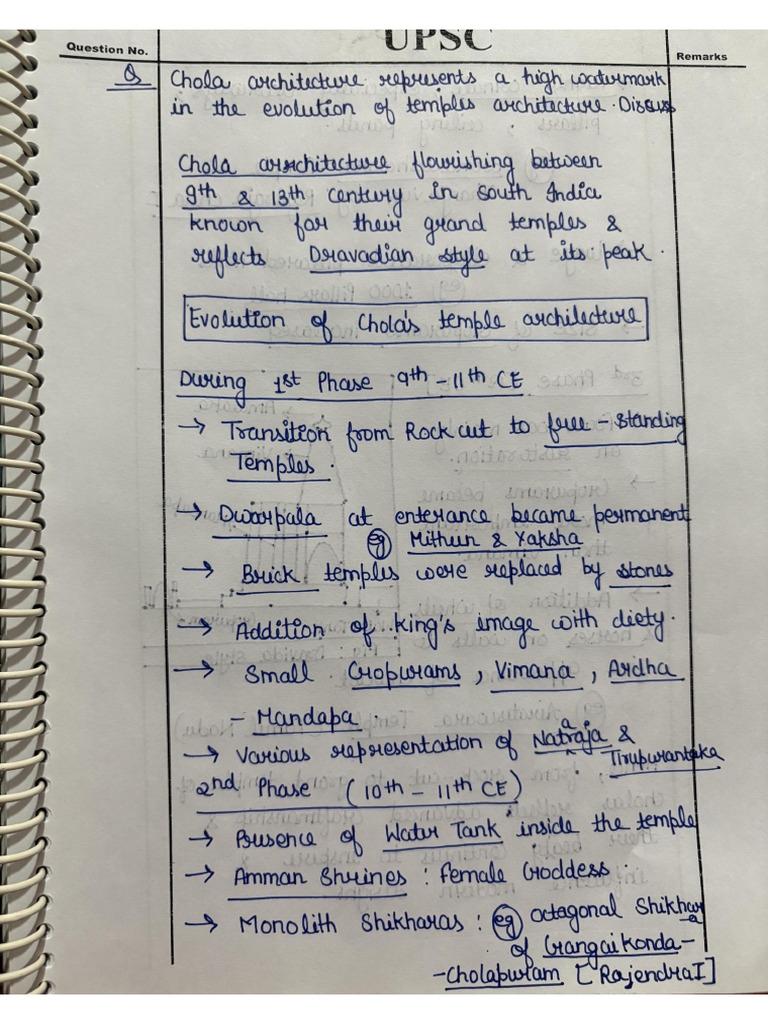 UPSC
Question No.
Remarks
Q Chola architecture represents a high watermark
in the evolution of temples architecture. Discuss
Chola architecture flourishing between
9th & 13th century in South India
known for their grand temples &
reflects Dravadian style at its peak.
Evolution of Chola's temple architecture
During 1st Phase 9th - 11th CE
→ Transition from Rock cut to free-standing
Temples.
→ Dwarpala at enterance became permanent
eg Mithun & Yaksha
→ Brick temples were replaced by stones
→ Addition of king's image with diety.
→ Small Gopurams, Vimana, Ardha
- Mandapa.
→ Various representation of Nataraja & Tirupurantaka
2nd Phase (10th - 11th CE)
→ Presence of Water Tank inside the temple
→ Amman Shrines : Female Goddess.
→ Monolith Shikharas : eg octagonal Shikhara
of Gangaikonda-
-Cholapuram [Rajendra I]